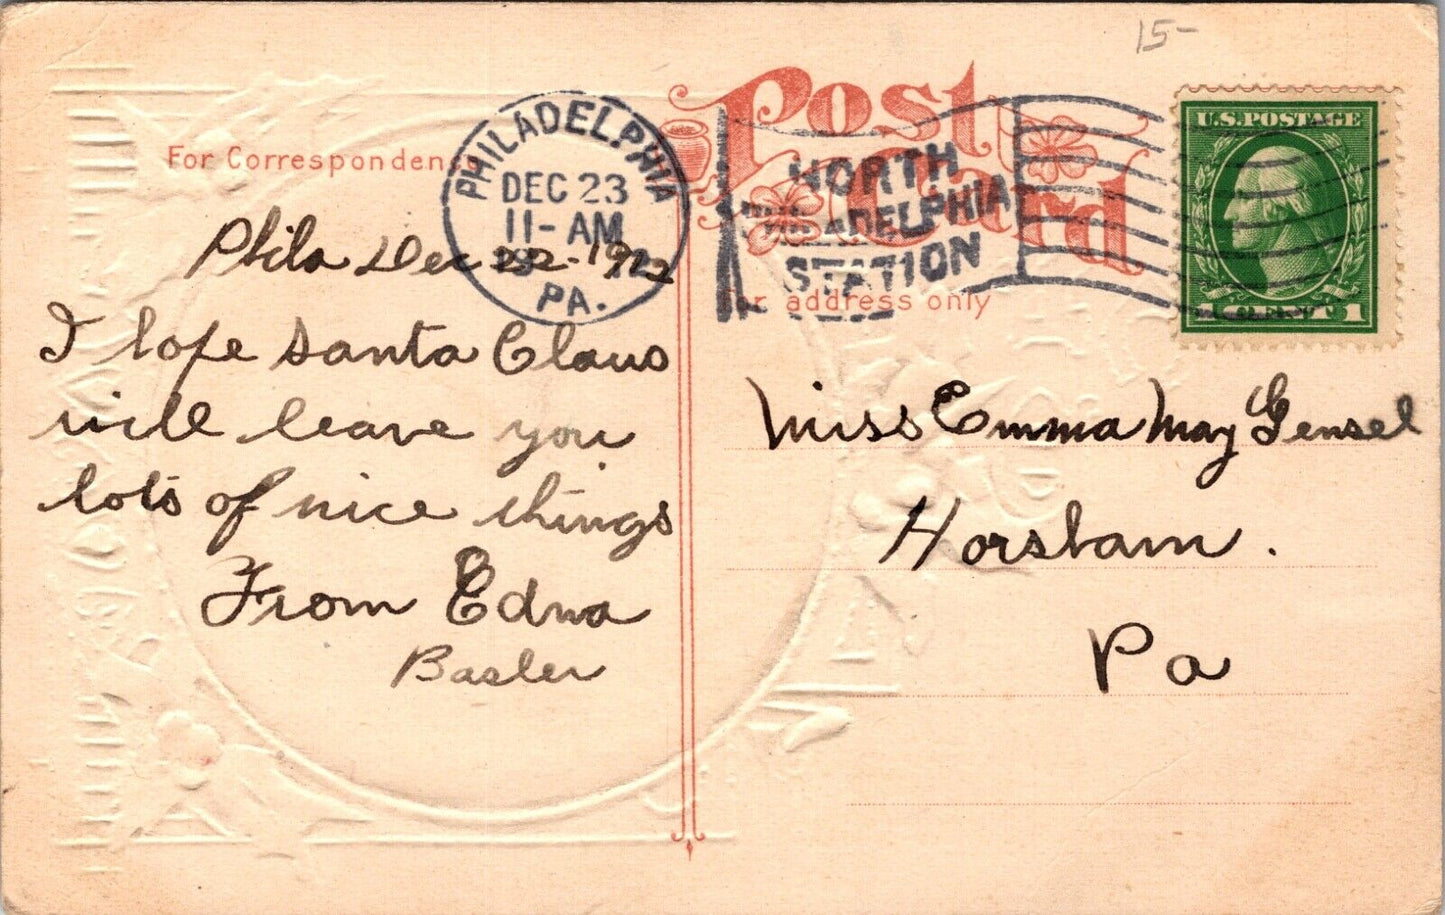 15-
Post Card
For Correspondence
PHILADELPHIA
DEC 23
11-AM
PA.
NORTH
PHILADELPHIA
STATION
For address only
U.S. POSTAGE
1 CENT 1
Phila Dec 22-1912
I hope Santa Claus
will leave you
lots of nice things
From Edna
Basler
Miss Emma May Gensel
Horsham.
Pa